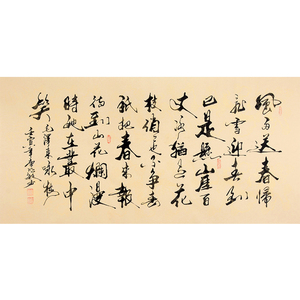 風雨送春歸
飛雪迎春到
已是懸崖百
丈冰猶有花
枝俏也不爭春
祇把春來報
待到山花爛漫
時她在叢中
笑 毛澤東詠梅